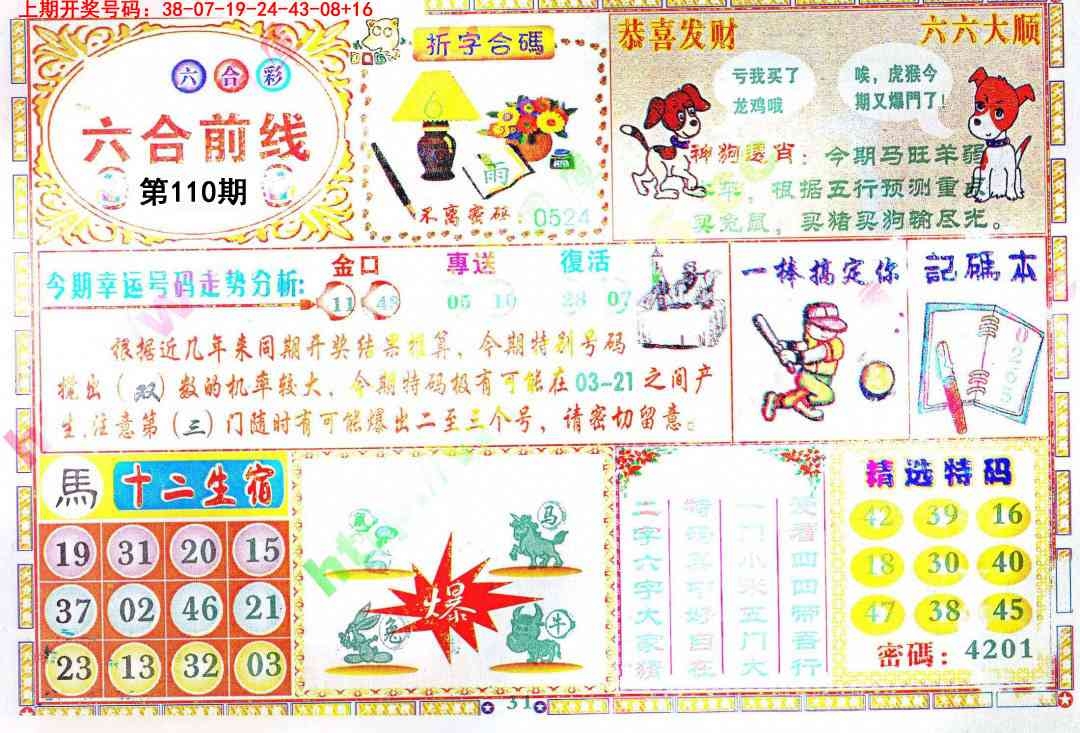 上期开奖号码：38-07-19-24-43-08+16
六合彩
六合前线
第110期
折字合碼
雨
不离密码：0524
恭喜发财
六六大顺
亏我买了
龙鸡哦
唉，虎猴今
期又爆門了！
神狗選肖：今期马旺羊弱
根据五行预测重点
买兔鼠，买猪买狗输尽光。
今期幸运号码走势分析：
金口
專送
復活
11 43
05 10
28 07
根据近几年来同期开奖结果推算，今期特别号码
搅出（双）数的机率较大，今期特码极有可能在03-21之间产
生，注意第（三）门随时有可能爆出二至三个号，请密切留意。
一棒搞定你
3
記碼本
0265
馬
十二生宿
19 31 20 15
37 02 46 21
23 13 32 03
鼠
马
爆
兔
牛
四四带吾行
一门小米五门大
特码买可好自在
二字六字大家猜
精选特码
42 39 16
18 30 40
47 38 45
密碼：4201
31